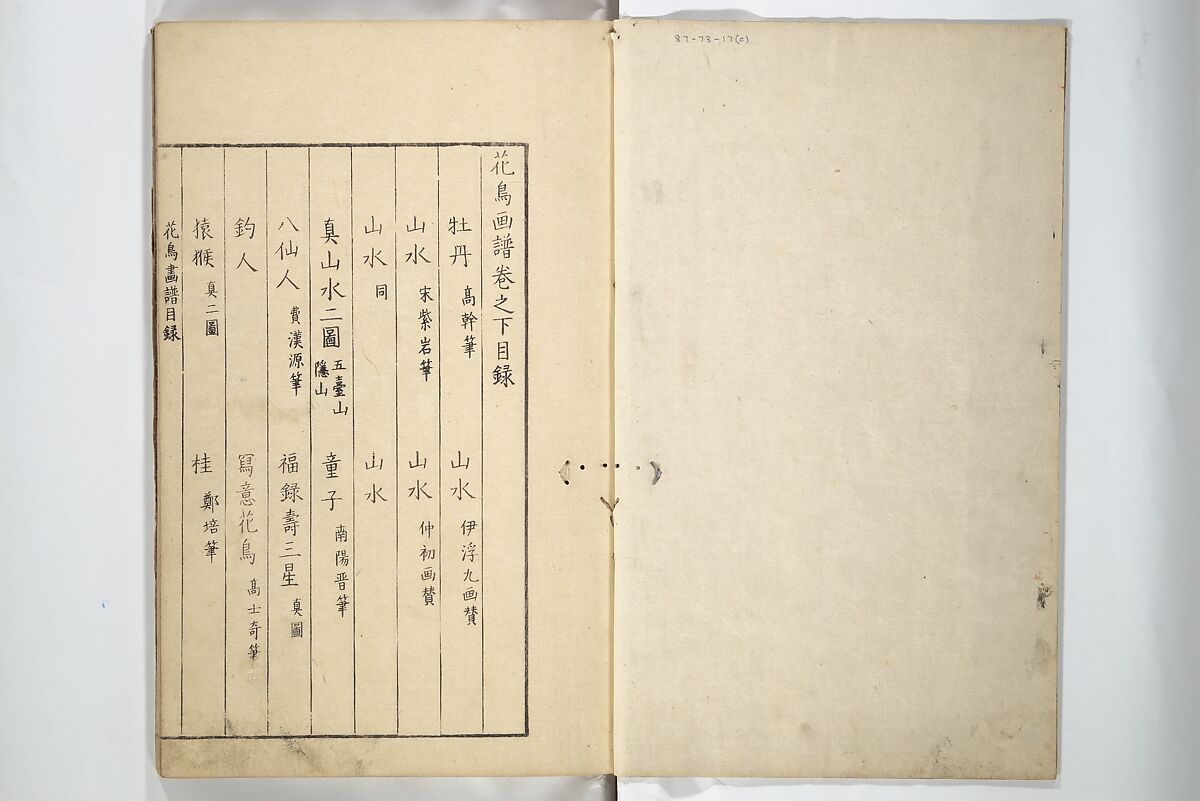 87-73-17(c)
花鳥画譜巻之下目録
牡丹 高幹筆 山水 伊浮九画賛
山水 宋紫岩筆 山水 仲初画賛
山水 同 山水
真山水二圖 五臺山 隱山 童子 南陽晋筆
八仙人 費漢源筆 福録壽三星 真圖
釣人 寫意花鳥 高士奇筆
猿猴 真二圖 桂 鄭培筆
花鳥畫譜目録